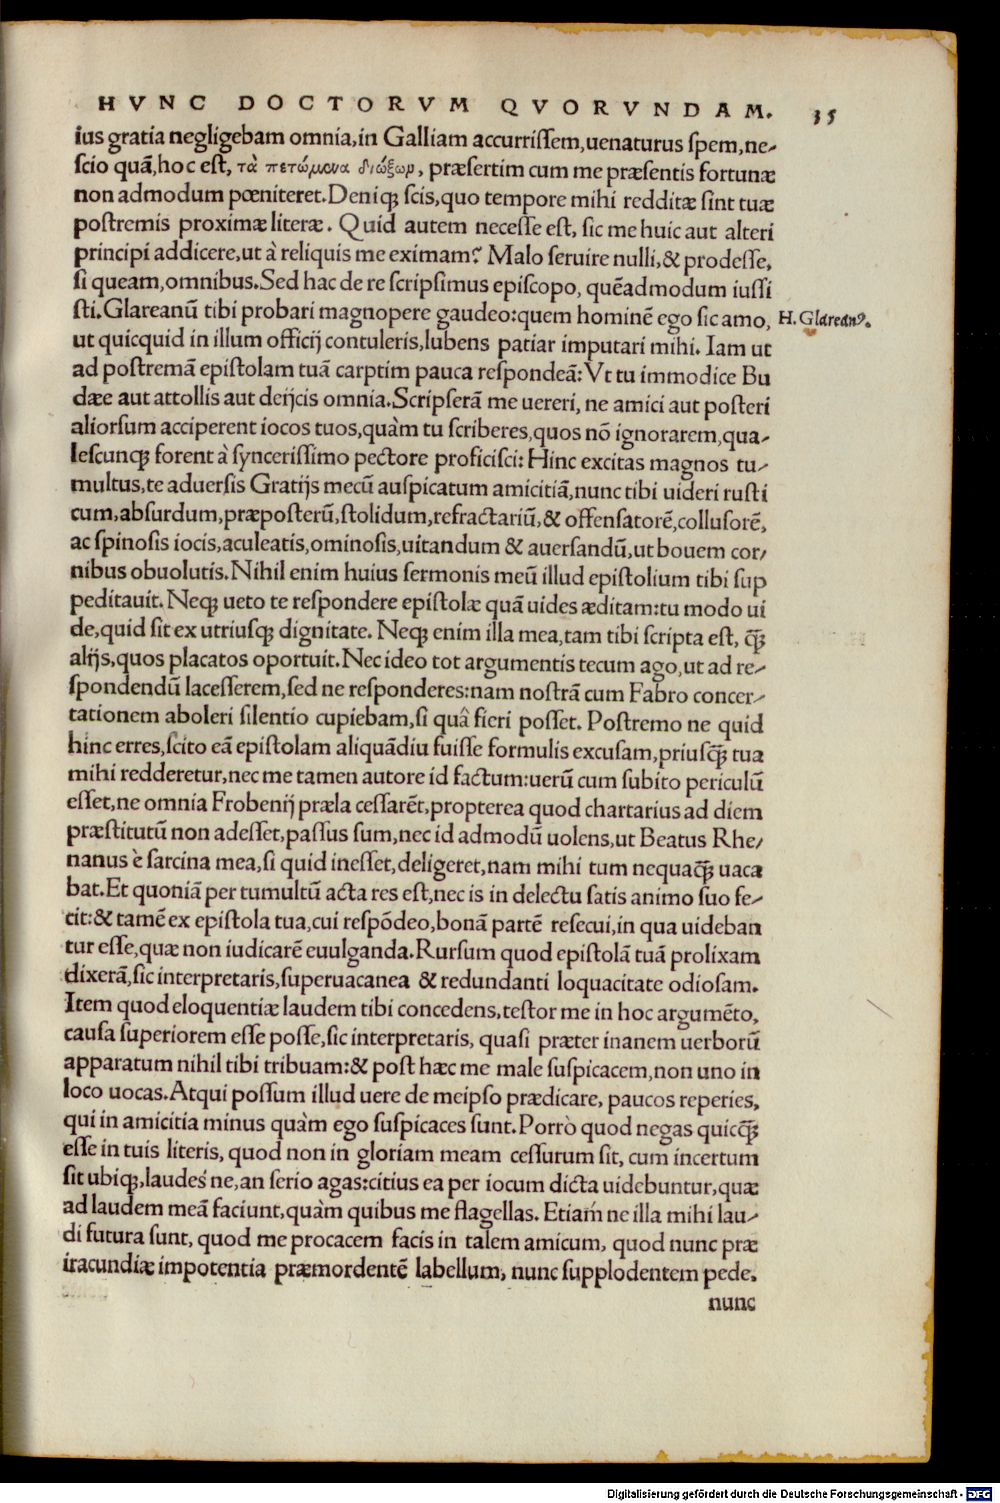 HVNC DOCTORVM QVORVNDAM. 35
ius gratia negligebam omnia, in Galliam accurrissem, uenaturus spem, ne-
scio quã, hoc est, τὰ πετώμονα διώξωρ, præsertim cum me præsentis fortunæ
non admodum pœniteret. Deniqꝫ scis, quo tempore mihi redditæ sint tuæ
postremis proximæ literæ. Quid autem necesse est, sic me huic aut alteri
principi addicere, ut à reliquis me eximam? Malo seruire nulli, & prodesse,
si queam, omnibus. Sed hac de re scripsimus episcopo, quẽadmodum iussi
sti. Glareanũ tibi probari magnopere gaudeo: quem hominẽ ego sic amo, H. Glareanꝰ.
ut quicquid in illum officij contuleris, lubens patiar imputari mihi. Iam ut
ad postremã epistolam tuã carptim pauca respondeã: Vt tu immodice Bu
dæe aut attollis aut deijcis omnia. Scripserã me uereri, ne amici aut posteri
aliorsum acciperent iocos tuos, quàm tu scriberes, quos nõ ignorarem, qua-
lescunqꝫ forent à syncerissimo pectore proficisci: Hinc excitas magnos tu-
multus, te aduersis Gratijs mecũ auspicatum amicitiã, nunc tibi uideri rusti
cum, absurdum, præposterũ, stolidum, refractariũ, & offensatorẽ, collusorẽ,
ac spinosis iocis, aculeatis, ominosis, uitandum & auersandũ, ut bouem cor-
nibus obuolutis. Nihil enim huius sermonis meũ illud epistolium tibi sup
peditauit. Neqꝫ ueto te respondere epistolæ quã uides æditam: tu modo ui
de, quid sit ex utriusqꝫ dignitate. Neqꝫ enim illa mea, tam tibi scripta est, q̃ꝫ
alijs, quos placatos oportuit. Nec ideo tot argumentis tecum ago, ut ad re-
spondendũ lacesserem, sed ne responderes: nam nostrã cum Fabro concer-
tationem aboleri silentio cupiebam, si quâ fieri posset. Postremo ne quid
hinc erres, scito eã epistolam aliquãdiu fuisse formulis excusam, priusq̃ꝫ tua
mihi redderetur, nec me tamen autore id factum: uerũ cum subito periculũ
esset, ne omnia Frobenij præla cessarẽt, propterea quod chartarius ad diem
præstitutũ non adesset, passus sum, nec id admodũ uolens, ut Beatus Rhe-
nanus è sarcina mea, si quid inesset, deligeret, nam mihi tum nequaq̃ꝫ uaca
bat. Et quoniã per tumultũ acta res est, nec is in delectu satis animo suo fe-
cit: & tamẽ ex epistola tua, cui respõdeo, bonã partẽ resecui, in qua uideban
tur esse, quæ non iudicarẽ euulganda. Rursum quod epistolã tuã prolixam
dixerã, sic interpretaris, superuacanea & redundanti loquacitate odiosam.
Item quod eloquentiæ laudem tibi concedens, testor me in hoc argumẽto,
causa superiorem esse posse, sic interpretaris, quasi præter inanem uerborũ
apparatum nihil tibi tribuam: & post hæc me male suspicacem, non uno in
loco uocas. Atqui possum illud uere de meipso prædicare, paucos reperies,
qui in amicitia minus quàm ego suspicaces sunt. Porrò quod negas quicq̃ꝫ
esse in tuis literis, quod non in gloriam meam cessurum sit, cum incertum
sit ubiqꝫ, laudes ne, an serio agas: citius ea per iocum dicta uidebuntur, quæ
ad laudem meã faciunt, quàm quibus me flagellas. Etiam ne illa mihi lau-
di futura sunt, quod me procacem facis in talem amicum, quod nunc præ
iracundiæ impotentia præmordentẽ labellum, nunc supplodentem pede,
nunc
Digitalisierung gefördert durch die Deutsche Forschungsgemeinschaft - DFG